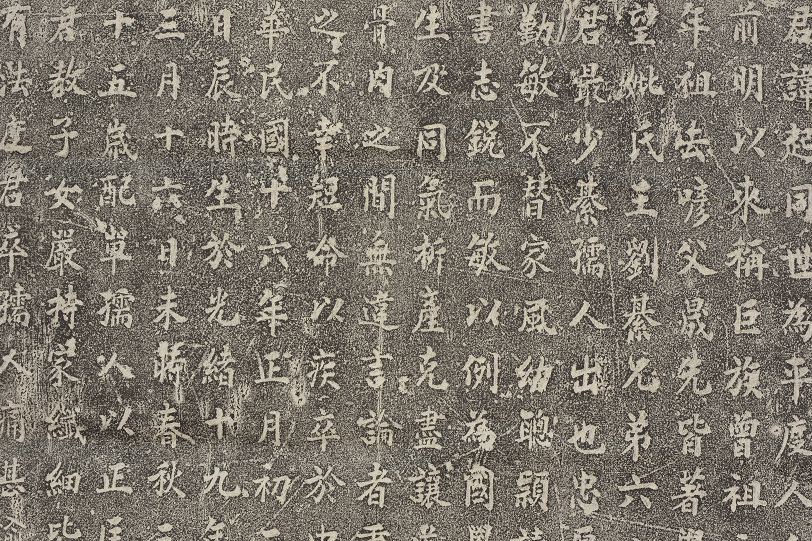 君諱起同世為平度人
前明以來稱巨族曾祖
年祖去嗲父晟先皆著
望妣氏王劉綦兄弟六
君最少綦孺人出也忠
勤敏不替家風幼聰穎
書志銳而敏以例為國
生及同氣析產克盡讓
骨肉之間無違言論者
之不幸短命以疾卒於
華民國十六年正月初
日辰時生於光緒十九年
三月十六日未時春秋三
十五歲配單孺人以正
君教子女嚴持家纖細
有法度君卒孺人痛甚